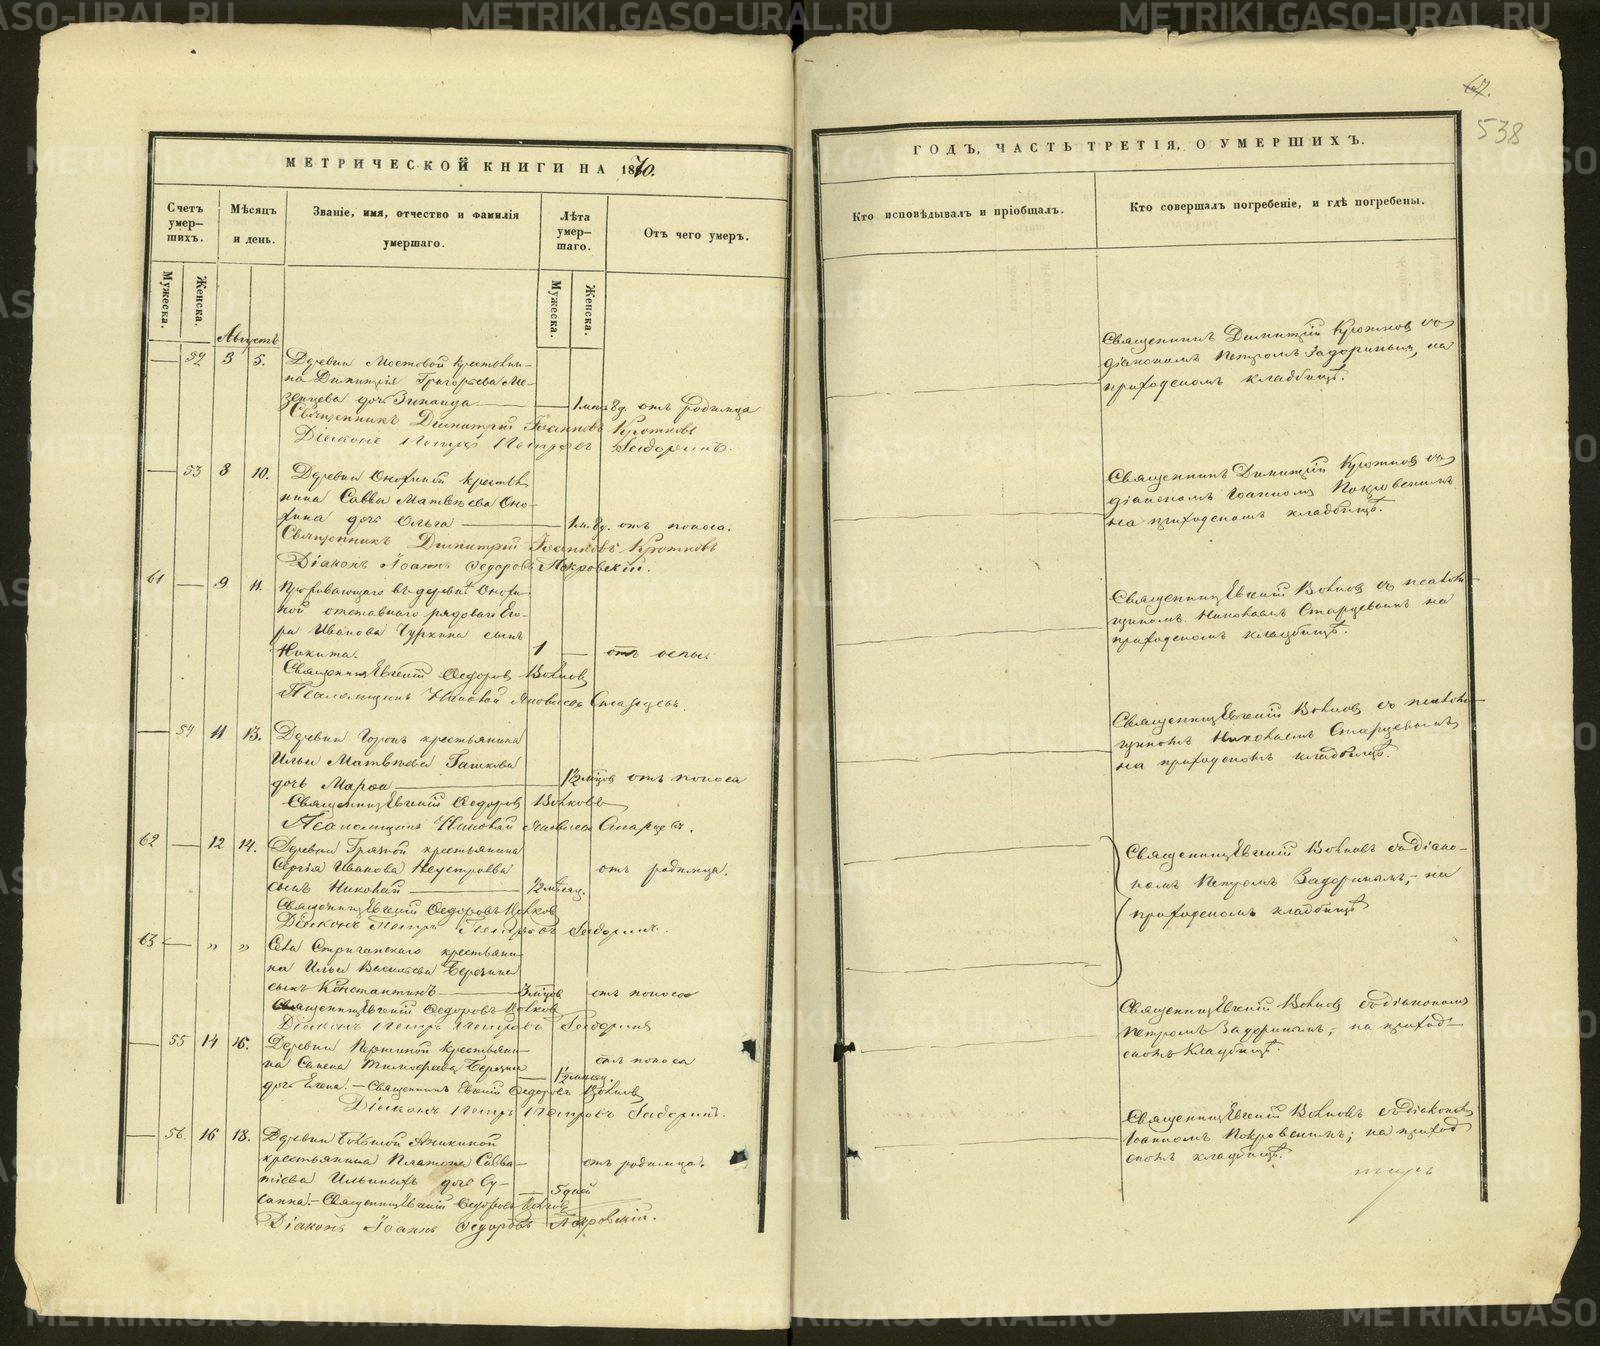 МЕТРИЧЕСКОЙ КНИГИ НА 1870.
Счетъ умер-шихъ.
Мѣсяцъ и день.
Званіе, имя, отчество и фамилія умершаго.
Лѣта умер-шаго.
Отъ чего умеръ.
Мужеска.
Женска.
Мужеска.
Женска.
Августъ
52 3 5. Деревни Мостовой крестьяни-
на Димитрія Григорьева Ме-
зенцева дочь Зинаида 1 мѣс. 8 д. отъ родимца
Священникъ Димитрій Іоанновъ Кротковъ
Діаконъ Петръ Петровъ Задоринъ.
53 8 10. Деревни Онохиной крестья
нина Саввы Матвѣева Оно-
хина дочь Ольга 1 м. 8 д. отъ поноса.
Священникъ Димитрій Іоанновъ Кротковъ
Діаконъ Іоаннъ Ѳедоровъ Покровскій.
61 9 11. Проживающаго въ деревнѣ Онохи-
ной отставнаго рядоваго Его-
ра Иванова Чуркина сынъ
Никита. 1 отъ оспы.
Священникъ Евгеній Ѳедоровъ Волковъ
Псаломщикъ Николай Яковлевъ Старцевъ.
54 11 13. Деревни крестьянина
Ильи Матвѣева Гашкова
дочь Марѳа 1½ мѣсяцовъ отъ поноса
Священникъ Евгеній Ѳедоровъ Волковъ
Псаломщикъ Николай Яковлевъ Старцевъ.
62 12 14. Деревни Грязной крестьянина
Сергія Иванова Неустроева отъ родимца.
сынъ Николай ½ мѣсяц.
Священникъ Евгеній Ѳедоровъ Волковъ
Діаконъ Петръ Петровъ Задоринъ.
63 „ „ Села Стриганскаго крестьяни-
на Ильи Васильева Берсенева
сынъ Константинъ 3 мѣсяцовъ отъ поноса
Священникъ Евгеній Ѳедоровъ Волковъ
Діаконъ Петръ Петровъ Задоринъ
55 14 16. Деревни Першиной крестьяни-
на Семена Тимофеева отъ поноса
1½ мѣсяц.
дочь Елена. – Священникъ Евгеній Ѳедоровъ Волковъ
Діаконъ Петръ Петровъ Задоринъ.
56. 16 18. Деревни Большой Аникиной
крестьянина Платона Савва- отъ родимца.
тіева Ильиныхъ дочь Су- 5 дней
санна. – Священникъ Евгеній Ѳедоровъ Волковъ
Діаконъ Іоаннъ Ѳедоровъ Покровскій.
67.
538
ГОДЪ, ЧАСТЬ ТРЕТІЯ, О УМЕРШИХЪ.
Кто исповѣдывалъ и пріобщалъ.
Кто совершалъ погребеніе, и гдѣ погребены.
Священникъ Димитрій Кротковъ со
діакономъ Петромъ Задоринымъ, на
приходскомъ кладбищѣ.
Священникъ Димитрій Кротковъ со
діакономъ Іоанномъ Покровскимъ
на приходскомъ кладбищѣ.
Священникъ Евгеній Волковъ съ псалом-
щикомъ Николаемъ Старцевымъ на
приходскомъ кладбищѣ.
Священникъ Евгеній Волковъ съ псалом-
щикомъ Николаемъ Старцевымъ
на приходскомъ кладбищѣ.
Священникъ Евгеній Волковъ съ діако-
номъ Петромъ Задоринымъ, на
приходскомъ кладбищѣ
Священникъ Евгеній Волковъ съ діакономъ
Петромъ Задоринымъ, на приход-
скомъ кладбищѣ.
Священникъ Евгеній Волковъ съ діакономъ
Іоанномъ Покровскимъ; на приход
скомъ кладбищѣ.
METRIKI.GASO-URAL.RU